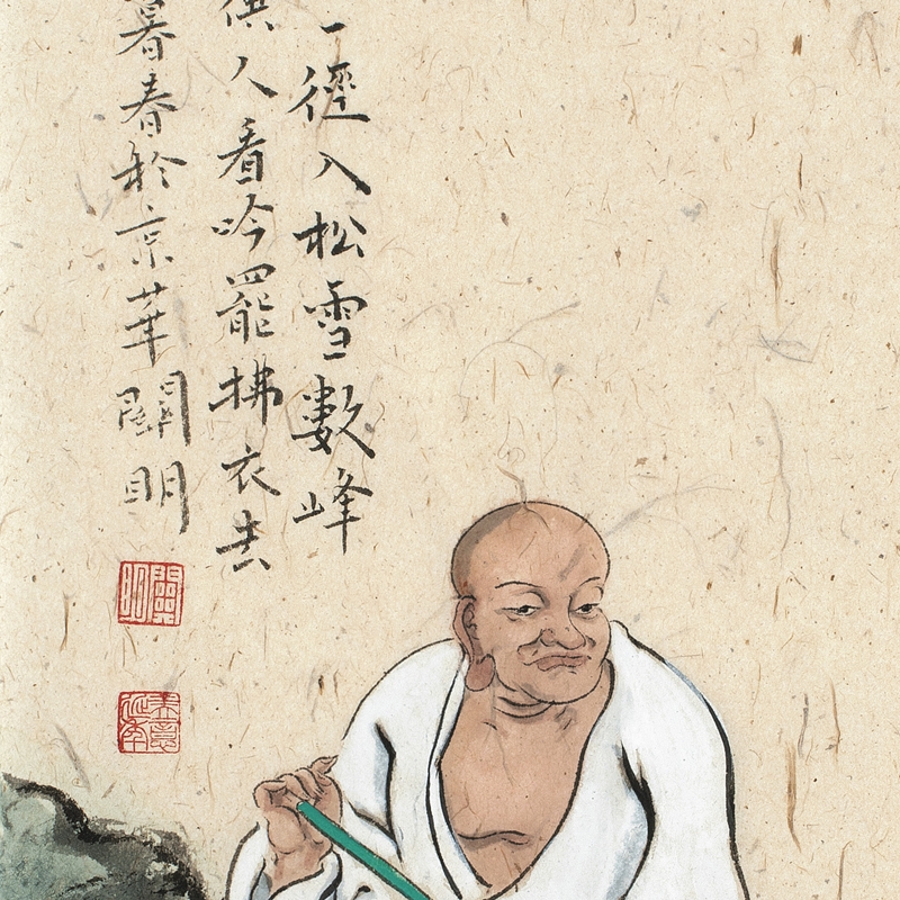 一徑入松雪數峰
供人看吟罷拂衣去
暮春於京華闌明